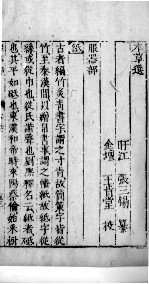 本草選
盱江 張三錫 纂
金壇 王肯堂 校
服器部
紙
古者編竹炙青書字謂之汗青故簡策字皆從
竹至秦漢間以繒帛書事謂之幡紙故紙字從
糸或從巾也從氏諧聲也劉熙釋名云紙者砥
也其平如砥也東漢和帝時耒陽蔡倫始采樹